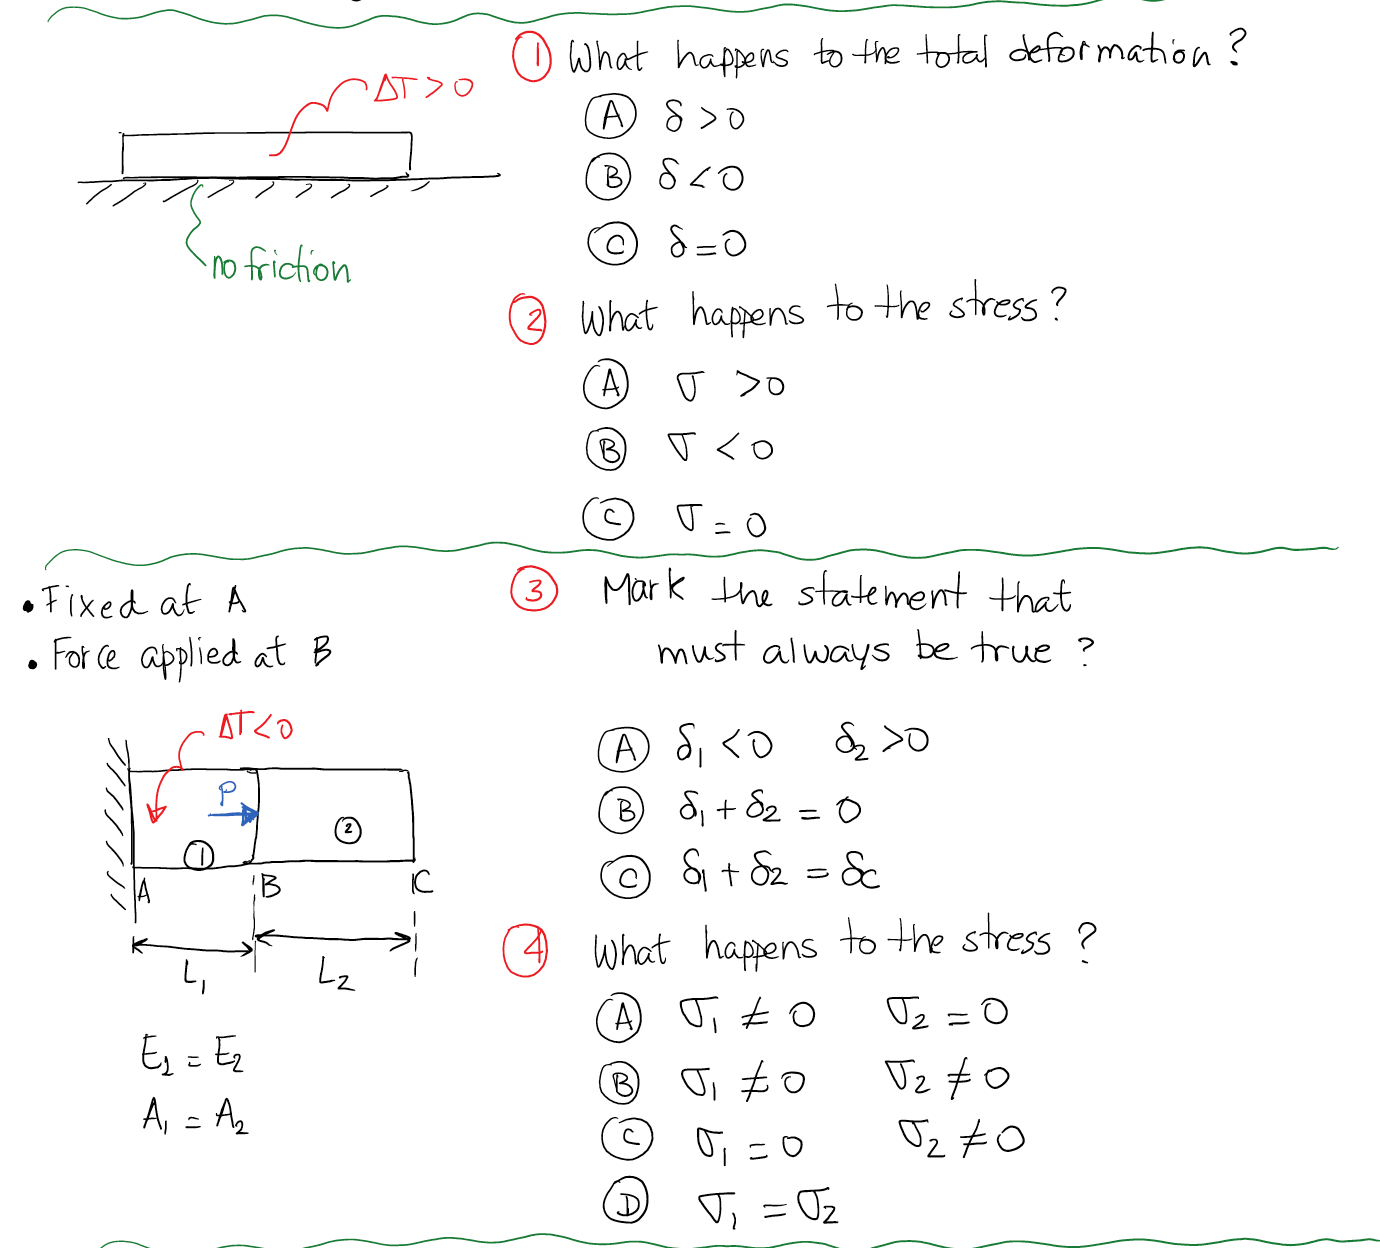 ① What happens to the total deformation?
ΔT > 0
Ⓐ δ > 0
Ⓑ δ < 0
Ⓒ δ = 0
no friction
② What happens to the stress?
Ⓐ σ > 0
Ⓑ σ < 0
Ⓒ σ = 0
• Fixed at A
• Force applied at B
ΔT < 0
P
① ②
A B C
L₁ L₂
E₂ = E₂
A₁ = A₂
③ Mark the statement that
must always be true?
Ⓐ δ₁ < 0 δ₂ > 0
Ⓑ δ₁ + δ₂ = 0
Ⓒ δ₁ + δ₂ = δc
④ What happens to the stress?
Ⓐ σ₁ ≠ 0 σ₂ = 0
Ⓑ σ₁ ≠ 0 σ₂ ≠ 0
Ⓒ σ₁ = 0 σ₂ ≠ 0
Ⓓ σ₁ = σ₂